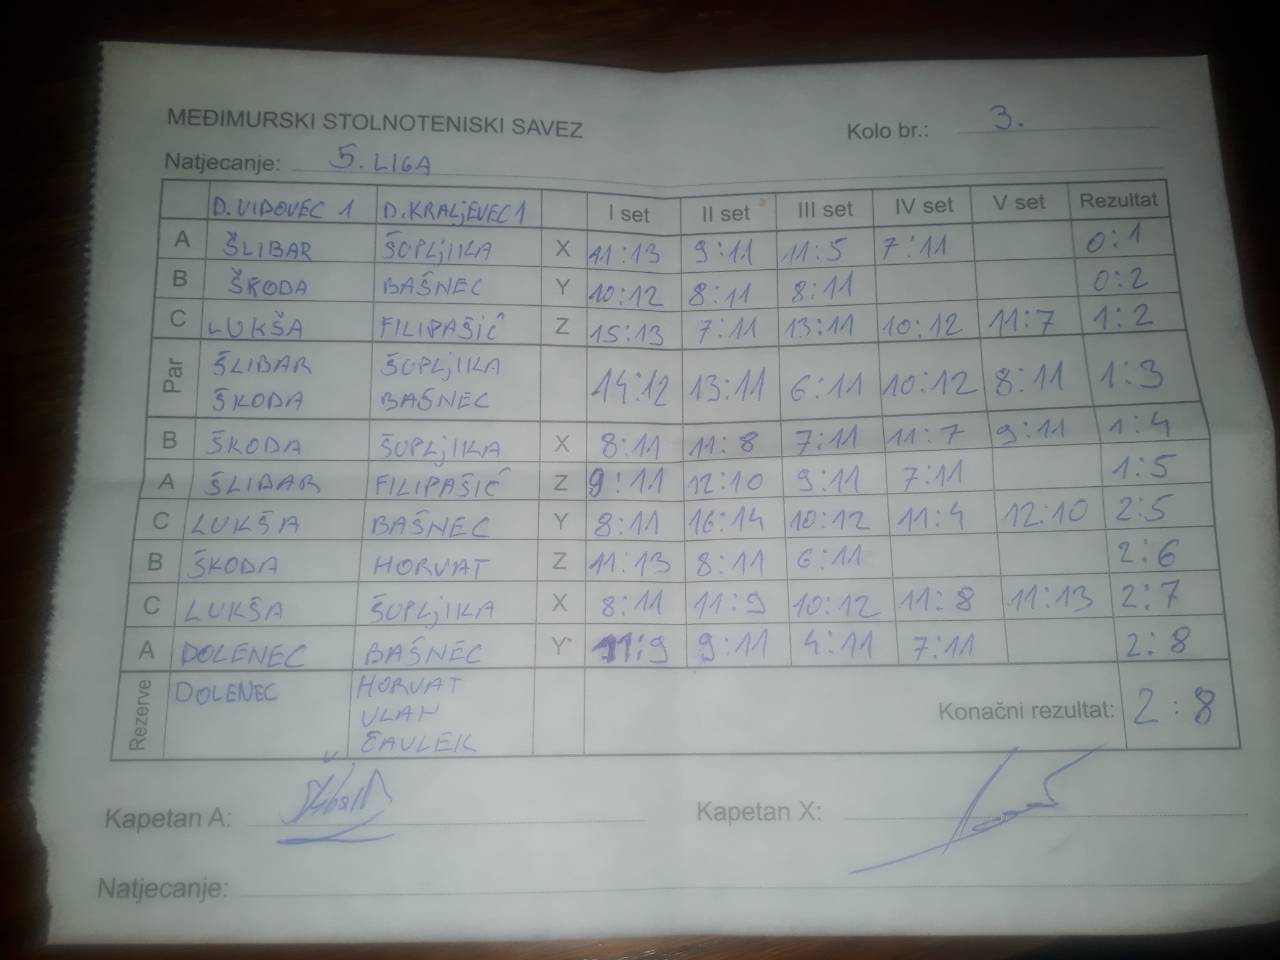 MEĐIMURSKI STOLNOTENISKI SAVEZ
Kolo br.: 3.
Natjecanje: 5. LIGA
D. VIDOVEC 1 D. KRALJEVEC 1 I set II set III set IV set V set Rezultat
A ŠLIBAR ŠOPLJIKA X 11:13 9:11 11:5 7:11 0:1
B ŠKODA BAŠNEC Y 10:12 8:11 8:11 0:2
C LUKŠA FILIPAŠIĆ Z 15:13 7:11 13:11 10:12 11:7 1:2
Par ŠLIBAR ŠOPLJIKA
ŠKODA BAŠNEC 14:12 13:11 6:11 10:12 8:11 1:3
B ŠKODA ŠOPLJIKA X 8:11 11:8 7:11 11:7 9:11 1:4
A ŠLIBAR FILIPAŠIĆ Z 9:11 12:10 9:11 7:11 1:5
C LUKŠA BAŠNEC Y 8:11 16:14 10:12 11:4 12:10 2:5
B ŠKODA HORVAT Z 11:13 8:11 6:11 2:6
C LUKŠA ŠOPLJIKA X 8:11 11:9 10:12 11:8 11:13 2:7
A DOLENEC BAŠNEC Y 11:9 9:11 4:11 7:11 2:8
Rezerve DOLENEC HORVAT
VLAH
ČAVLEK
Konačni rezultat: 2:8
Kapetan A:
Kapetan X:
Natjecanje: